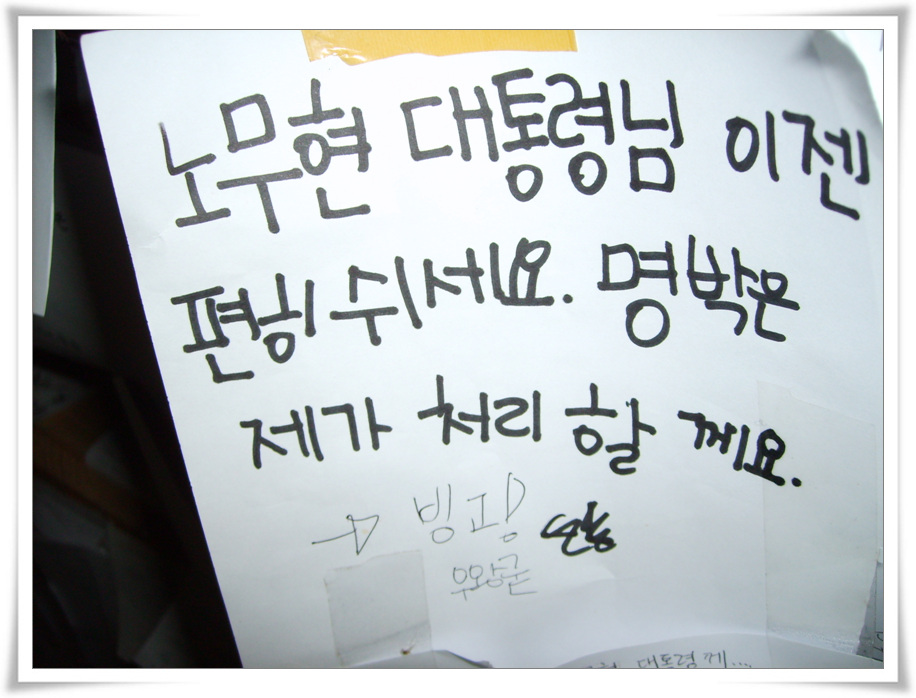 노무현 대통령님 이젠
편히 쉬세요. 명박은
제가 처리 할 께요.
빙고!
우왕굳
대통령께...